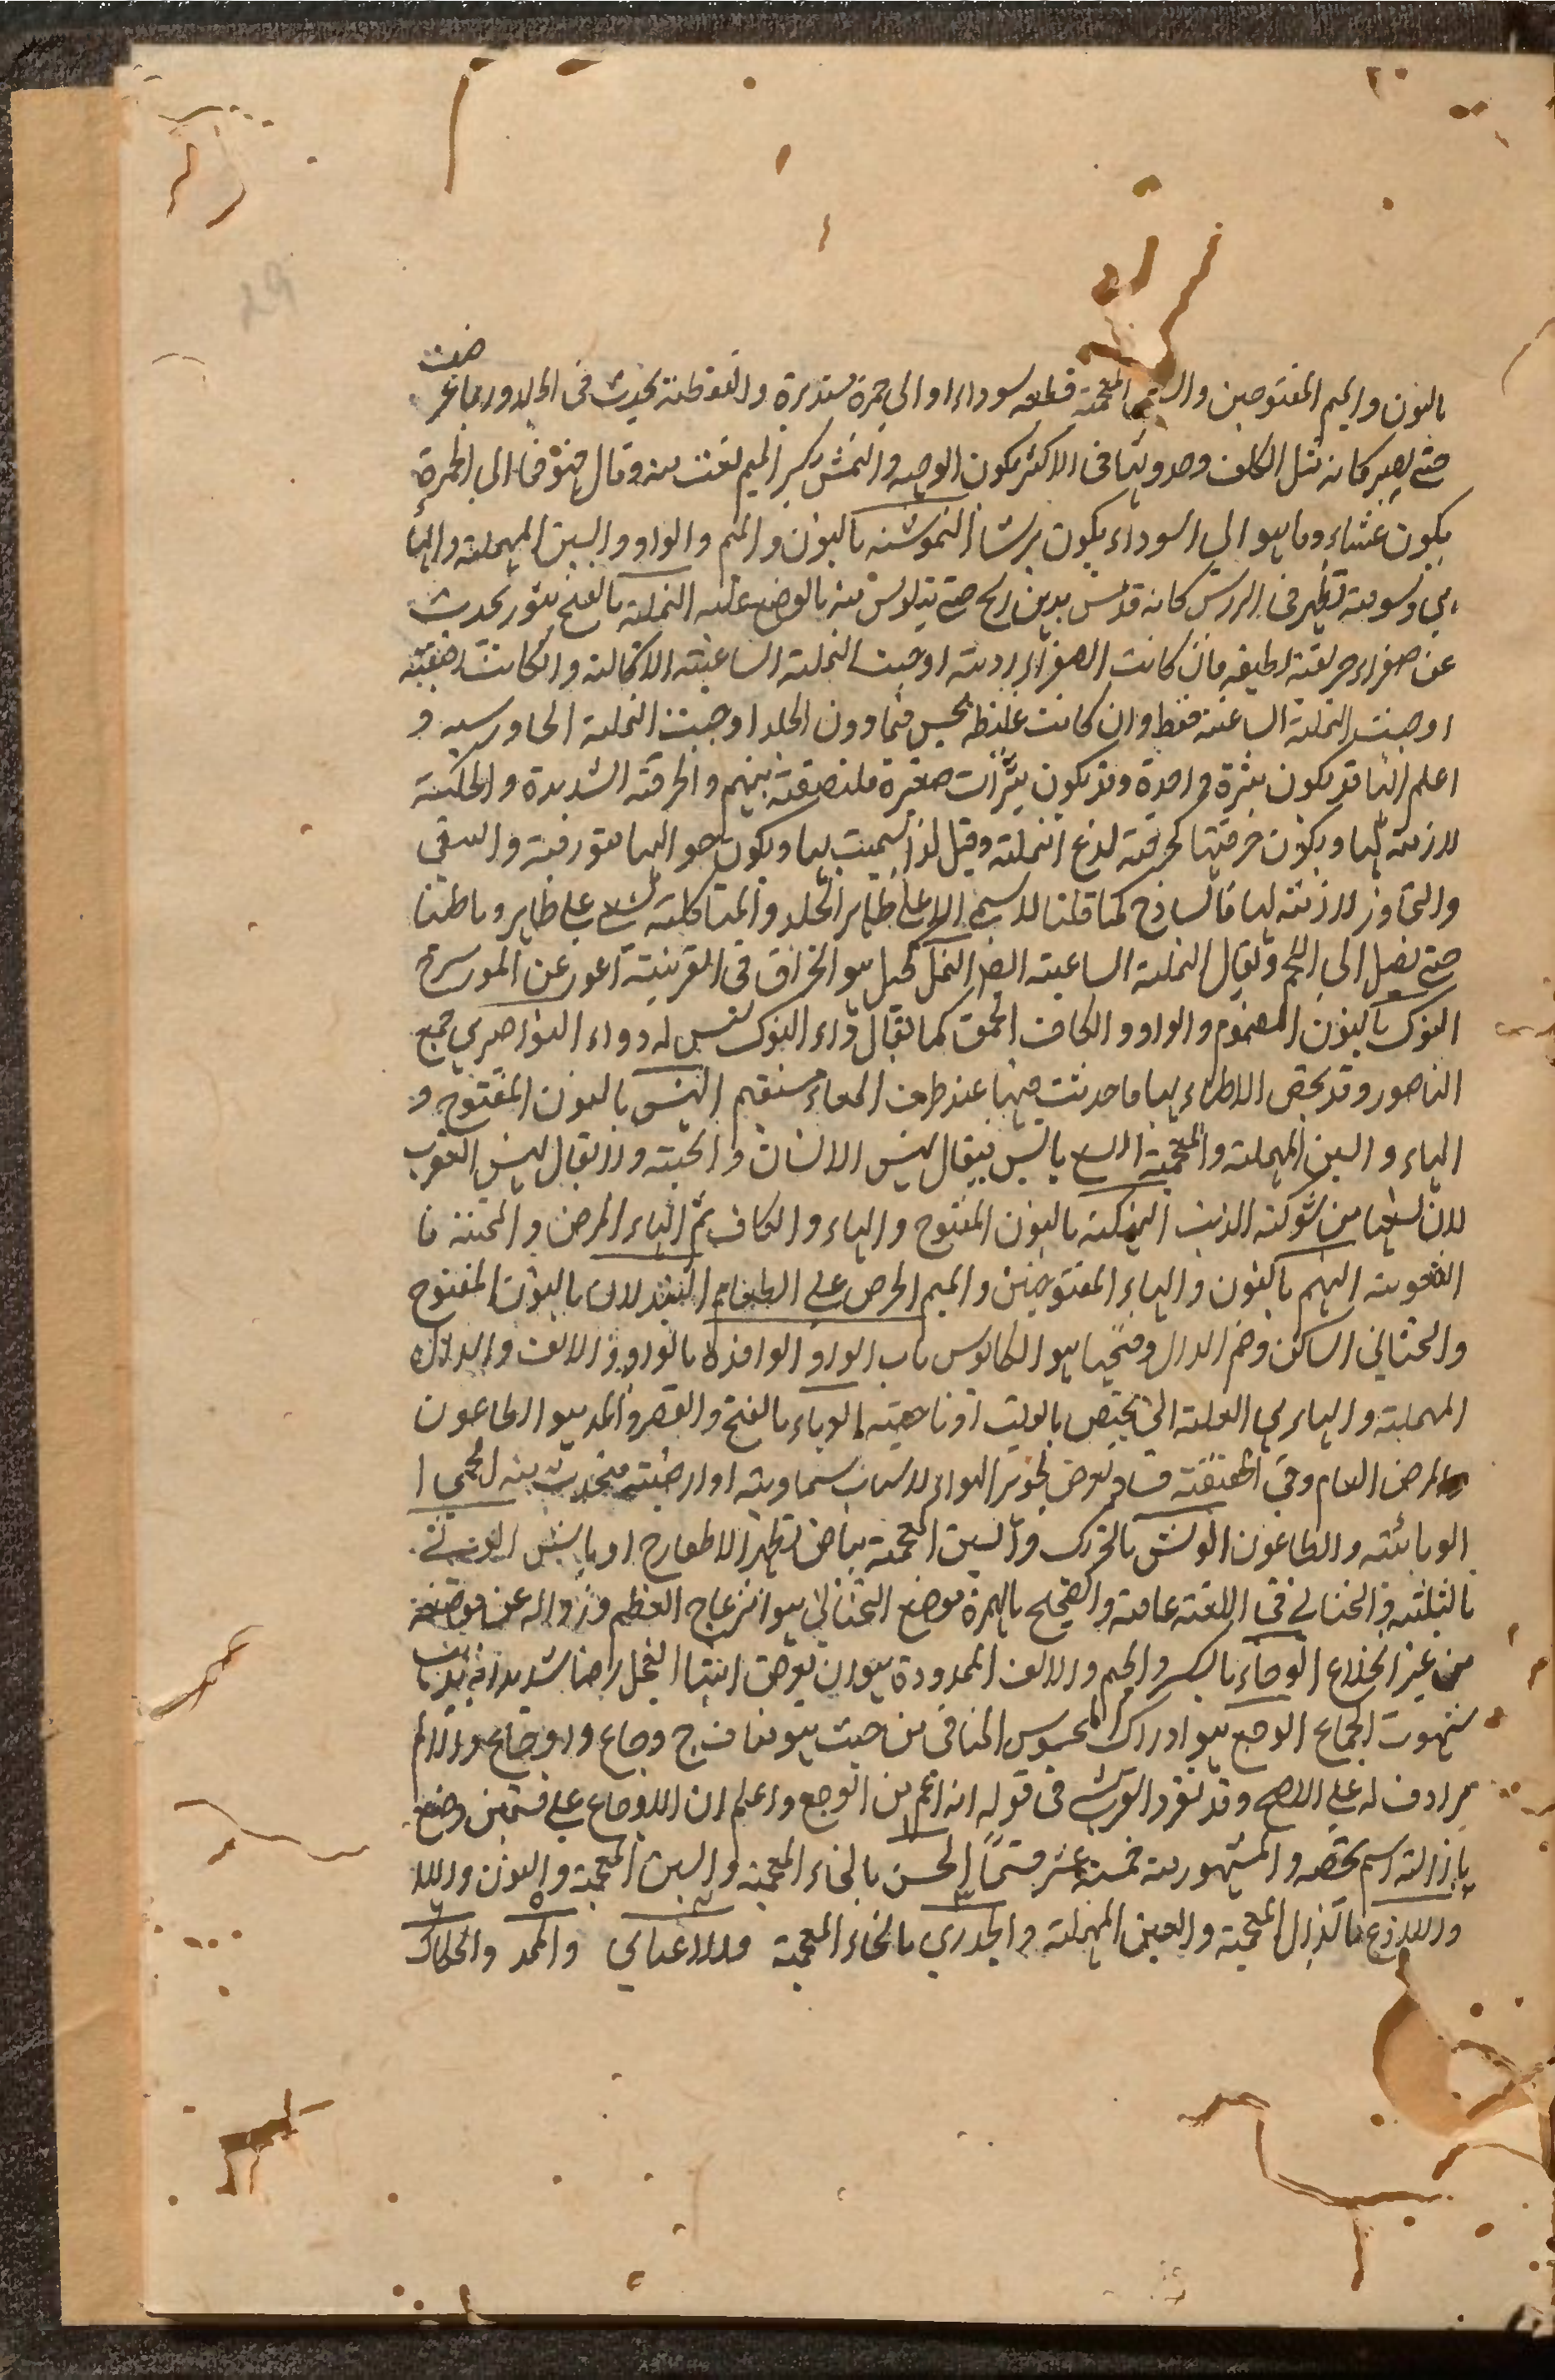 29
ضت
بالنون والميم المفتوحين والشين المعجمة قطعه سوداء او الى حمرة مستديرة والنقوطنة يحدث فى الجلد وربما عر
حتى يصير كانه مثل الكلف وحدوثها فى الاكثر يكون الوجه والنمش بكسر الميم نعت منه وقال هو فما الى الحمرة
يكون غشاء وما هو الى السوداء يكون برشا النموشنه بالنون والميم والواو والسين المهملة والهاء
هى وسومة تظهر فى الراس كانه قد بدهن حتى منه بالوضع عليه النملة بالفتح بثور تحدث
عن صفراء حريفة لطيفه فان كانت الصفراء ردية اوجبت النملة الساعية الاكالة وان كانت رقيقة
اوجبت النملة الساعية فقط وان كانت غليظه تحبس فيما دون الجلد اوجبت النملة الجاورسيه و
اعلم انها قد يكون بثرة واحدة وقد يكون بثرات صغيرة ملتصقة بينهم والحرقة الشديدة والحكة
لازمة لها ويكون حرقتها كحرقة لذع النملة وقيل لذا سميت بها ويكون حواليها متورمة والسعى
والتجاوز لازمة لها فالساذج كما قلنا لا يسعى الا على ظاهر الجلد والمتاكلة يسعى على ظاهر وباطنها
حتى تصل الى اللحم ويقال النملة الساعية ايضا النمل كحبل هو انخراق فى القرنية اعور عن المورسرج
النوك بالنون المضموم والواو والكاف الحمق كما يقال داء النوك ليس له دواء النواصرى جمع
الناصور وقد يخص الاطباء بها ما حدثت منها عند طرف المعاء مستقيم النهس بالنون المفتوح و
الهاء والسين المهملة والمعجمة اللسع بالسن فيقال نهس الانسان والحية ولا يقال نهس العقرب
لان لسعها من شوكة الذنب النهكة بالنون المفتوح والهاء والكاف ثم الهاء المرض والمحنة فا
العقوبة النهم بالنون والهاء المفتوحتين والميم الحرص على الطعام النيدلان بالنون المفتوح
والتحتانى الساكن وضم الدال وفتحها هو الكابوس باب الواو الوافدة بالواو والالف والدال
المهملة والهاء هى العلة التى يختص بالوقت او ناحية الوباء بالفتح والقصر والمد هو الطاعون
والمرض العام وفى الحقيقة فساد يعرض لجوهر الهواء لاسباب سماوية او ارضية فيحدث منه الحمى ا
الوبائية والطاعون الوبش بالتحرك والشين المعجمة بياض يظهر الاظفار الوثى
بالثلثة والتحتانى فى اللغة عامة والصحيح بالهمزة موضع التحتانى هو انزعاج العظم وزواله عن موضعه
من غير انخلاع الوجاء بالكسر والجيم والالف الممدودة هو ان ترض انثيا الفحل رضا شديدا
شهوت الجماع الوجع هو ادراك المحسوس المنافى من حيث هو مناف ج وجاع واوجاع والالم
مرادف له على الاصح وقد تفرد القرشى فى قوله انه اعم من الوجع واعلم ان الاوجاع على قسمين وضع
بازائه اسم يخصه والمشهور منه خمسة عشر قسما الخشن بالخاء المعجمة والشين المعجمة والنون واللا
واللاذع بالذال المعجمة والعين المهملة والخدرى بالخاء المعجمة والاعيائى والممدد والحكاك